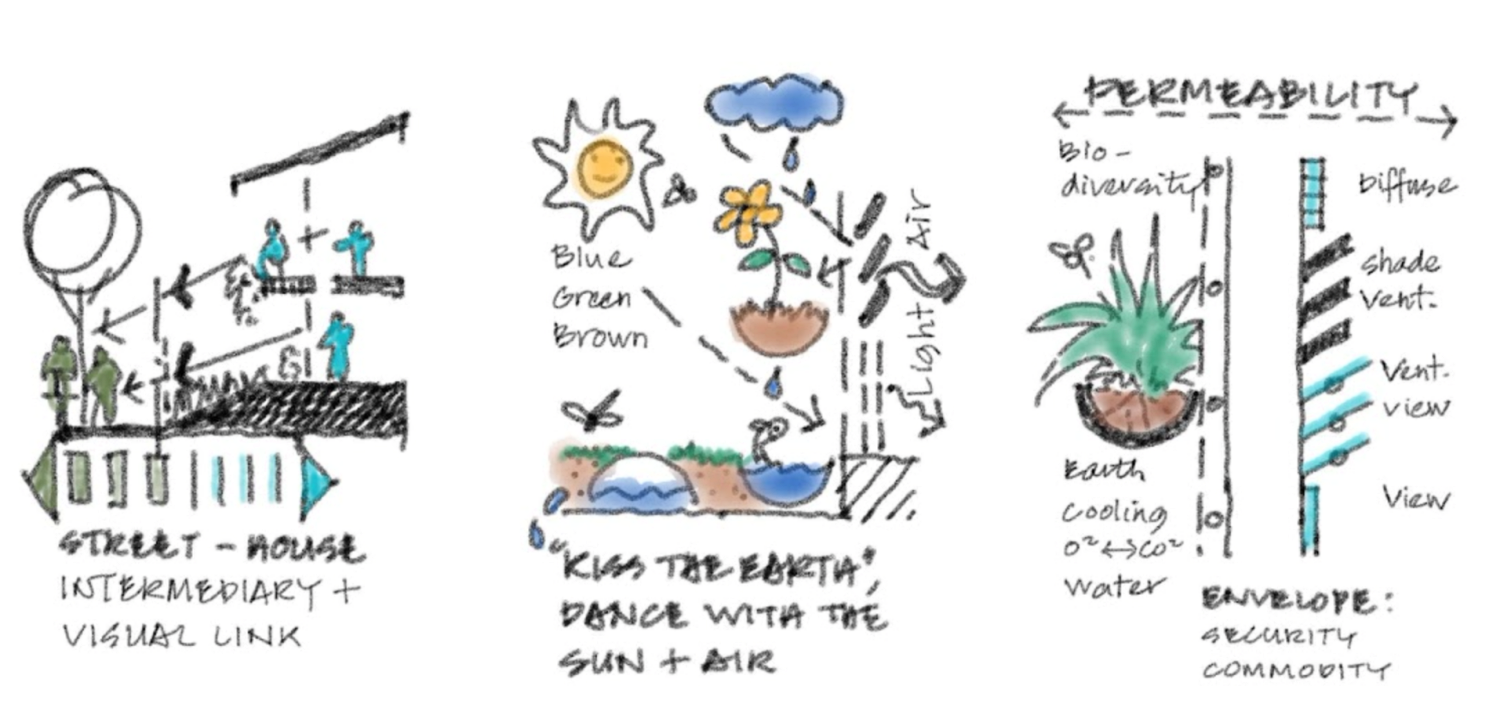 STREET – HOUSE
INTERMEDIARY +
VISUAL LINK
Blue
Green
Brown
Light Air
"KISS THE EARTH",
DANCE WITH THE
SUN + AIR
PERMEABILITY
Bio-
diversity
Diffuse
Shade
Vent.
Vent.
view
View
Earth
Cooling
O² ↔ CO²
Water
ENVELOPE:
SECURITY
COMMODITY